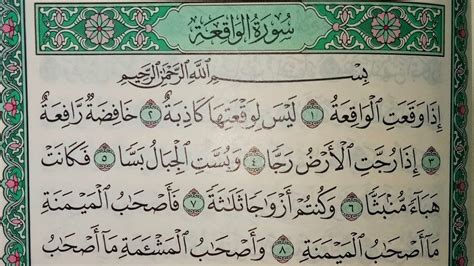 سُورَةُ الْوَاقِعَةِ
بِسْمِ اللَّهِ الرَّحْمَٰنِ الرَّحِيمِ
إِذَا وَقَعَتِ الْوَاقِعَةُ ١ لَيْسَ لِوَقْعَتِهَا كَاذِبَةٌ ٢ خَافِضَةٌ رَّافِعَةٌ
٣ إِذَا رُجَّتِ الْأَرْضُ رَجًّا ٤ وَبُسَّتِ الْجِبَالُ بَسًّا ٥ فَكَانَتْ
هَبَاءً مُّنْبَثًّا ٦ وَكُنْتُمْ أَزْوَاجًا ثَلَاثَةً ٧ فَأَصْحَابُ الْمَيْمَنَةِ
مَا أَصْحَابُ الْمَيْمَنَةِ ٨ وَأَصْحَابُ الْمَشْأَمَةِ مَا أَصْحَابُ